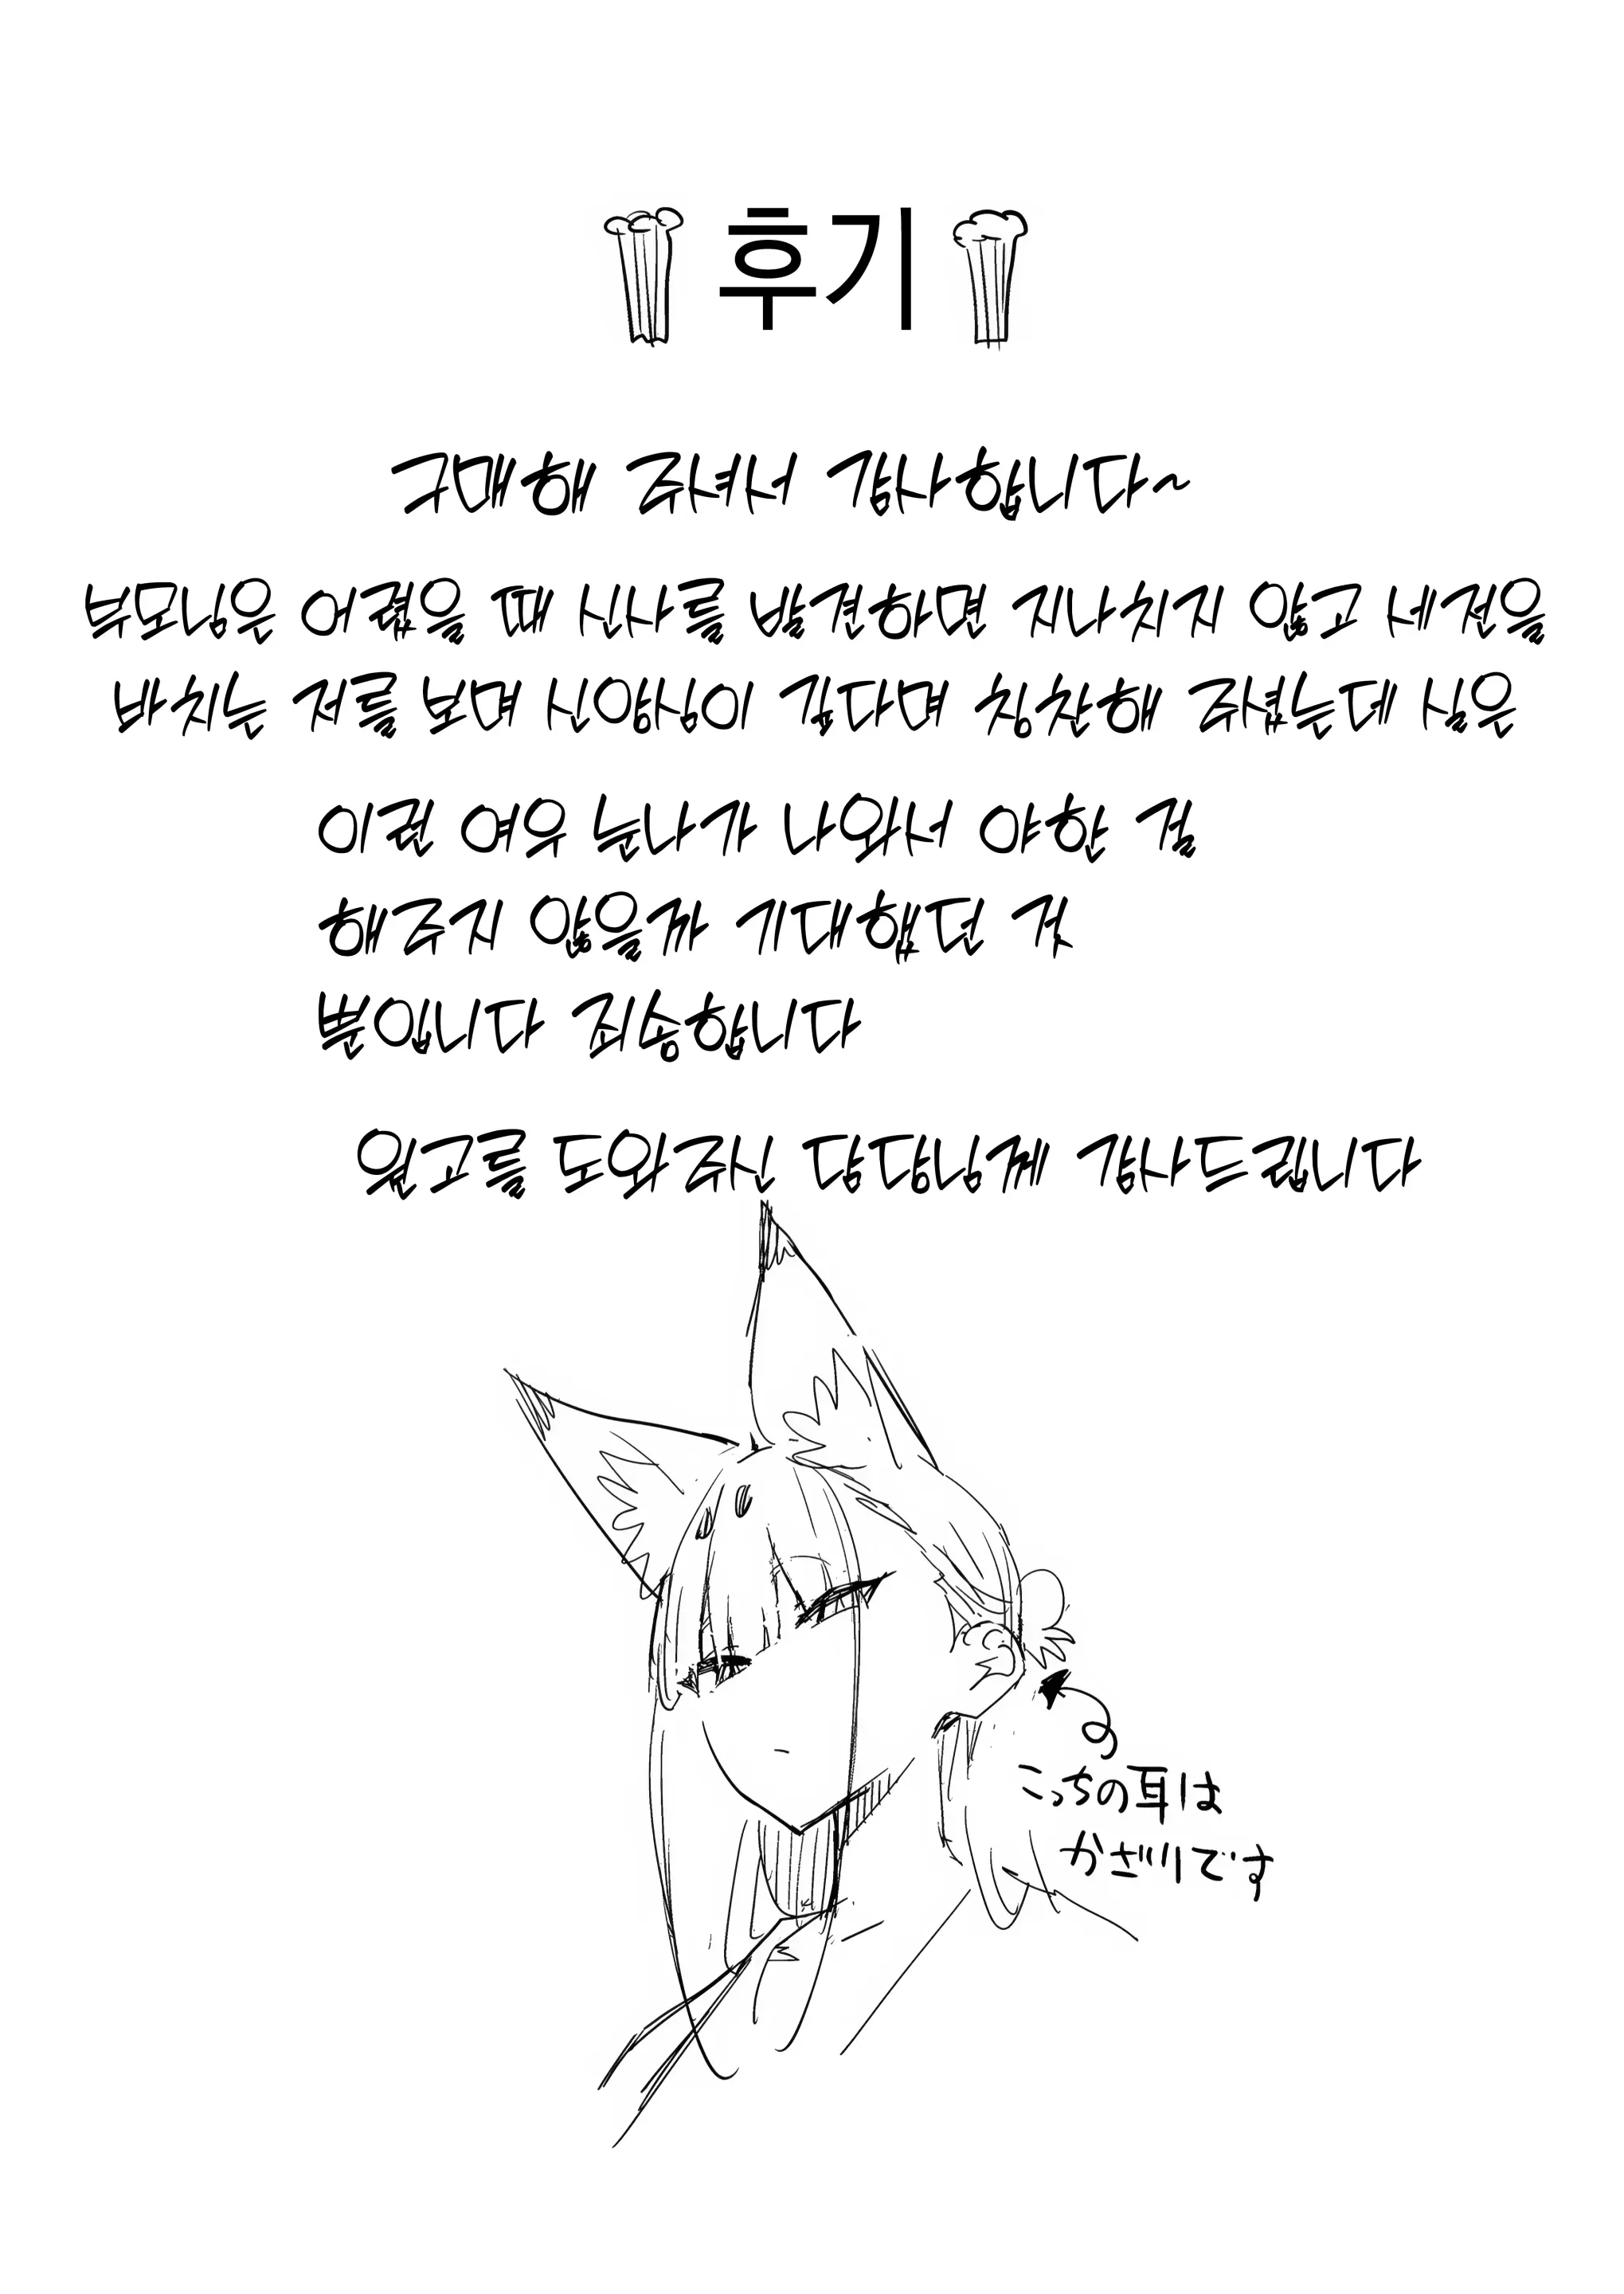 후기
구매해 주셔서 감사합니다~
부모님은 어렸을 때 신사를 발견하면 지나치지 않고 세전을
바치는 저를 보며 신앙심이 깊다며 칭찬해 주셨는데 실은
이런 여우 눈나가 나와서 야한 걸
해주지 않을까 기대했던 것
뿐입니다 죄송합니다
원고를 도와주신 담당님께 감사드립니다
こっちの耳は
かざりです